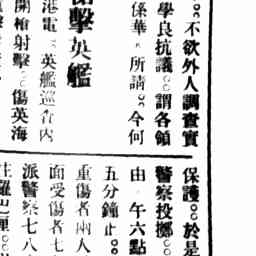 。不欲外人調查實
學良抗議。謂各領
係華所請。今何
擊英艦
港電。英艦巡省內
開槍射擊。傷英海
保護。於是
警察投擲
由午六點
五分鐘止。
重傷者兩人
面受傷者七
派警察七八